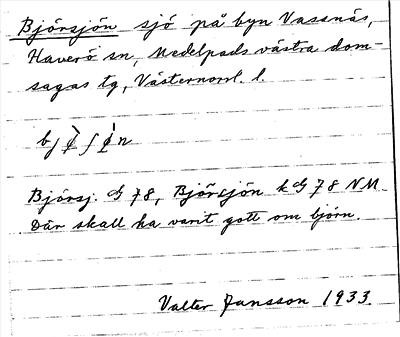 Björsjön sjö på byn Vassnäs,
Haverö sn, Medelpads västra dom-
sagas tg, Västernorrl. l.
Björsj. 78, Björsjön k 78 NM.
Där skall ha varit gott om björn.
Valter Jansson 1933.